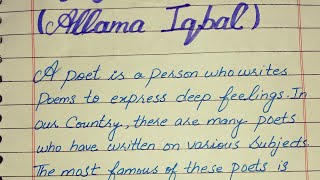 (Allama Iqbal)
A poet is a person who writes
poems to express deep feelings. In
our Country, there are many poets
who have written on various Subjects.
The most famous of these poets is